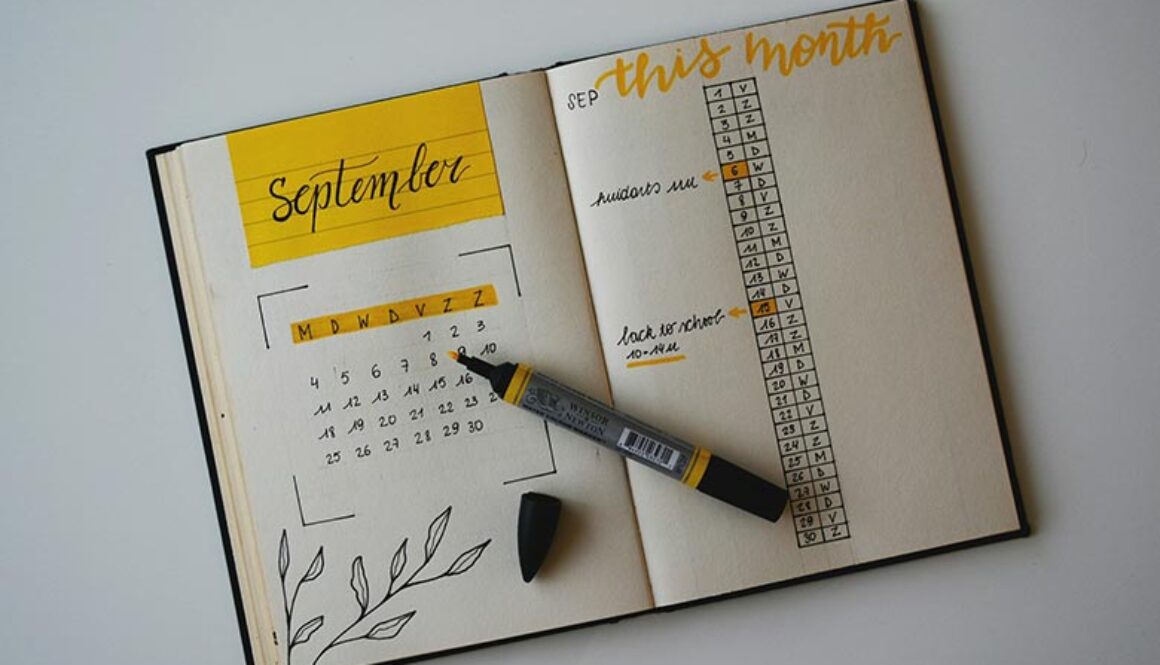 September
M D W D V Z Z
1 2 3
4 5 6 7 8 9 10
11 12 13 14 15 16
18 19 20 21 22 23 2
25 26 27 28 29 30
WINSOR
NEWTON
this month
SEP
1 V
2 Z
3 Z
4 M
5 D
6 W
7 D
8 V
9 Z
10 Z
11 M
12 D
13 W
14 D
15 V
16 Z
17 Z
18 M
19 D
20 W
21 D
22 V
23 Z
24 Z
25 M
26 D
27 W
28 D
29 V
30 Z
back to school
10-14u